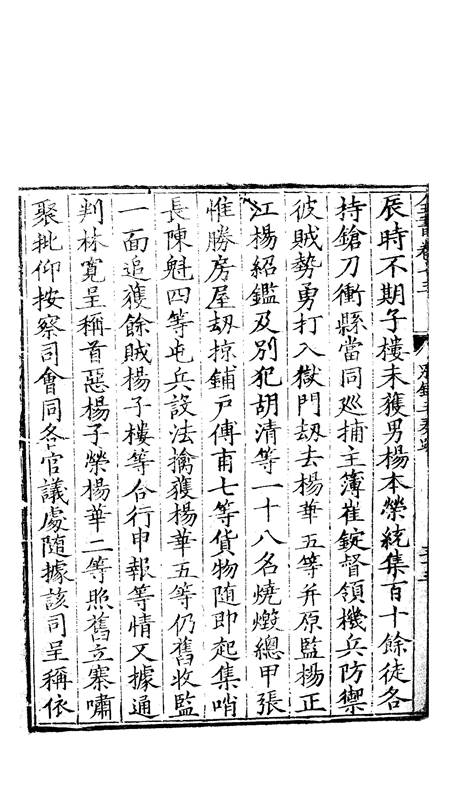 辰時不期子樓未獲男楊本榮統集百十餘徒各
持鎗刀衝縣當同廵捕主簿崔錠督領機兵防禦
彼賊勢勇打入獄門刼去楊華五等并原監楊正
江楊紹鑑及別犯胡清等一十八名燒燬總甲張
惟勝房屋刼掠鋪戶傅甫七等貨物隨即起集哨
長陳魁四等屯兵設法擒獲楊華五等仍舊收監
一面追獲餘賊楊子樓等合行申報等情又據通
判林寬呈稱首惡楊子榮楊華二等照舊立寨嘯
聚批仰按察司會同各官議處隨據該司呈稱依